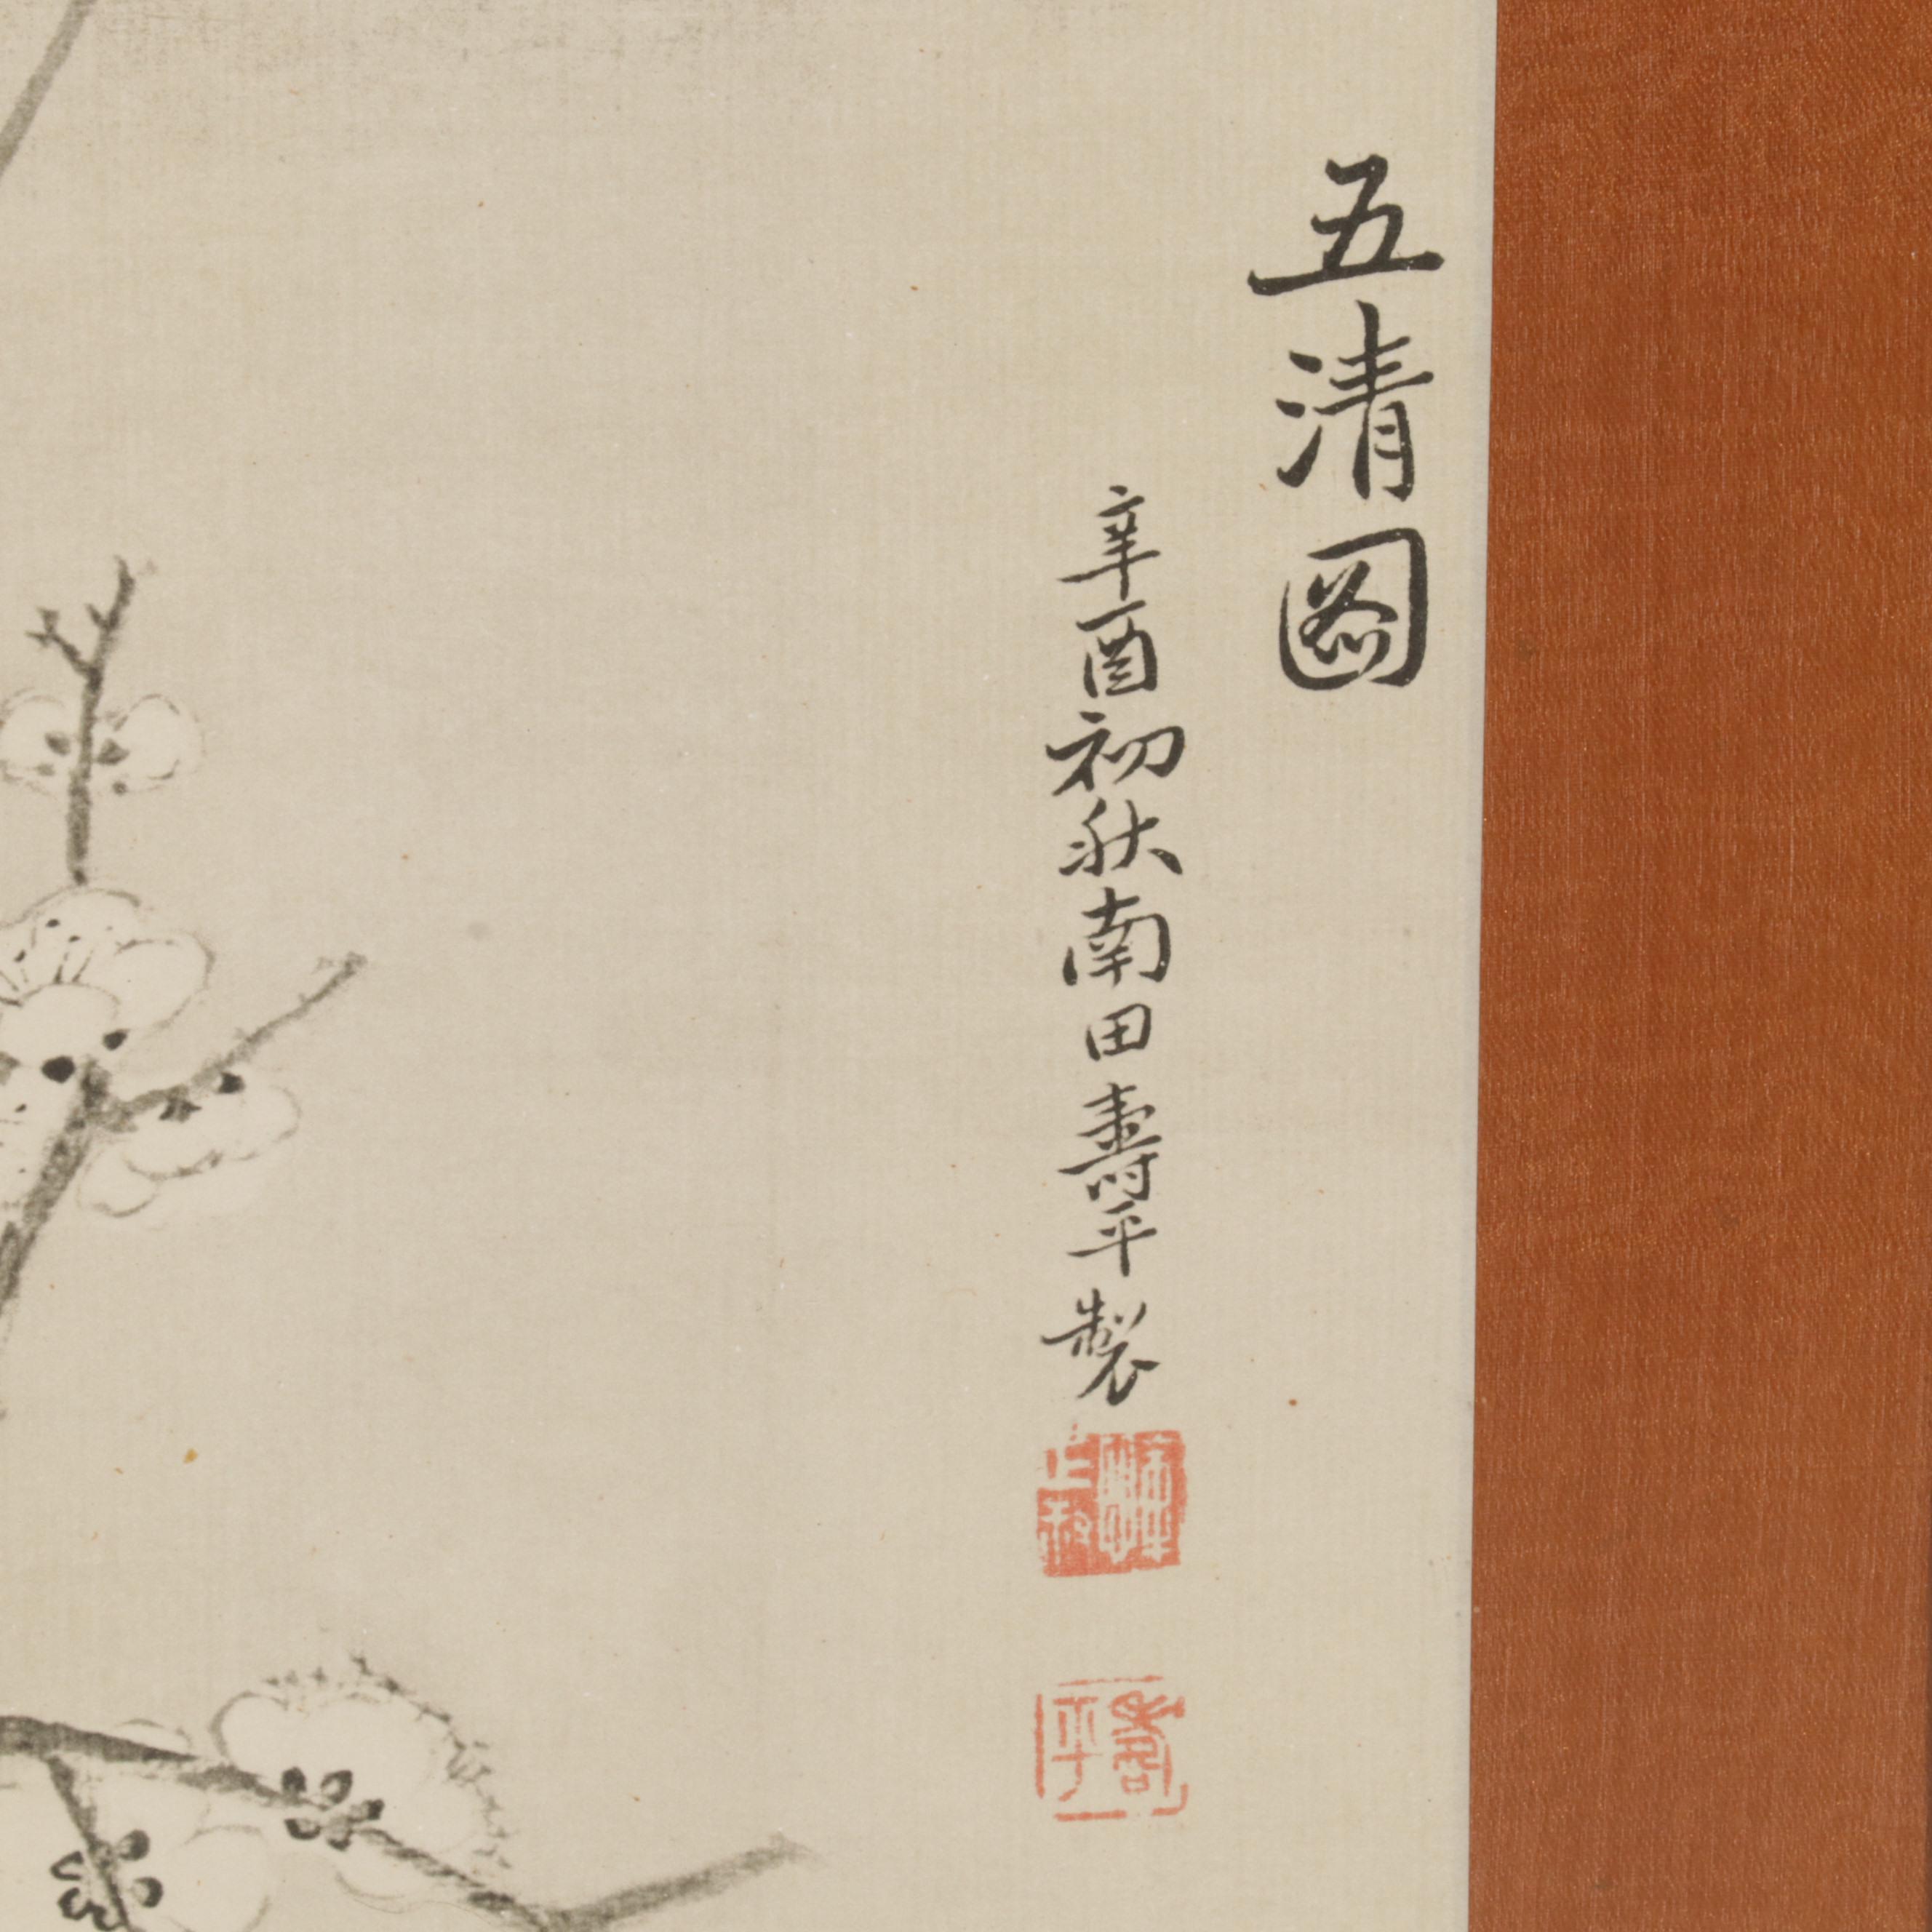 五清圖
辛酉初秋南田壽平製
壽平